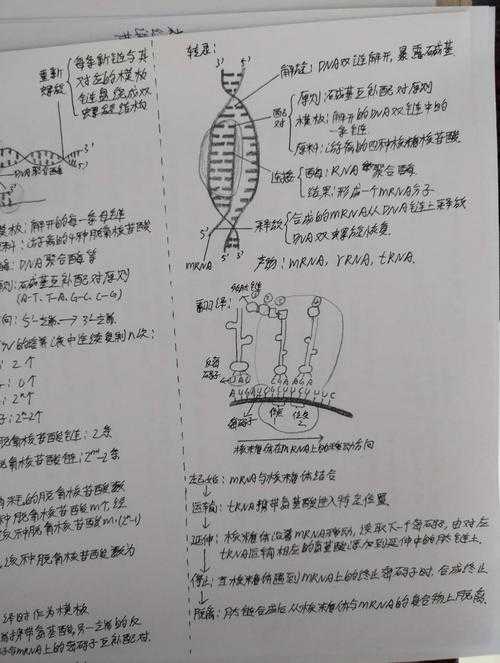 重新
螺旋
每条新链与其
对应的模板
链盘绕成双
螺旋结构
DNA聚合酶
3'
5'
模板:解开的每一条母链
原料:游离的4种脱氧核苷酸
酶:DNA聚合酶等
原则:碱基互补配对原则
(A-T、T-A、G-C、C-G)
方向:5'端→3'端
连续复制n次:
2个
0个
2ⁿ个
2ⁿ-2个
脱氧核苷酸链:2条
脱氧核苷酸数
种脱氧核苷酸m个,经
该种脱氧核苷酸m·(2ⁿ-1)
该种脱氧核苷酸数为
时作为模板
携带氨基酸,另一端的反
与mRNA上的密码子互补配对.
转录:
3' 5'
解旋:DNA双链解开,暴露碱基
配对
原则:碱基互补配对原则
模板:解开的DNA双链中的
一条链
原料:游离的四种核糖核苷酸
连接
酶:RNA聚合酶
结果:形成一个mRNA分子
释放
合成的mRNA从DNA链上释放
DNA双螺旋恢复
5'
3' 5'
mRNA
产物:mRNA, rRNA, tRNA.
翻译:
反密码子
密码子
位点1
位点2
核糖体在mRNA上的移动方向
起始:mRNA与核糖体结合
运输:tRNA携带氨基酸进入特定位置
延伸:核糖体沿着mRNA移动,读取下一个密码子,由对应
tRNA运输相应的氨基酸添加到延伸中的肽链上.
停止:当核糖体遇到mRNA上的终止密码子时,合成终止
脱离:肽链合成后从核糖体与mRNA的复合物上脱离.